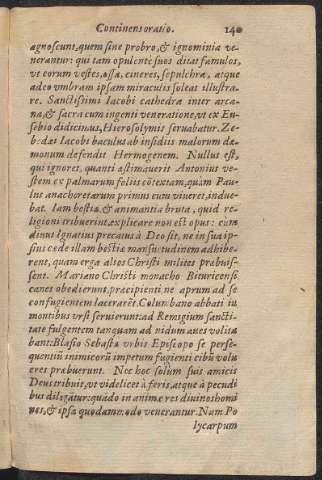 Continens oratio. 140
agnoscunt, quem sine probro, & ignominia ve-
nerantur: qui tam opulente suos ditat famulos,
vt eorum vestes, ossa, cineres, sepulchra, atque
adeo vmbram ipsam miraculis soleat illustra-
re. Sanctissimi Iacobi cathedra inter arca-
na, & sacra cum ingenti veneratione, vt ex Eu-
sebio didicimus, Hierosolymis seruabatur. Ze-
bedæi Iacobi baculus ab insidiis malorum dæ-
monum defendit Hermogenem. Nullus est,
qui ignoret, quanti æstimauerit Antonius ve-
stem ex palmarum foliis cōtextam, quam Pau-
lus anachoretarum primus cum viueret, indue-
bat. Iam bestiæ, & animantia bruta, quid re-
ligioni tribuerint, explicare non est opus: cum
diuus Ignatius precatus à Deo sit, ne in sua ip-
sius cæde illam bestiæ mansuetudinem adhibe-
rent, quam erga alios Christi milites præbuis-
sent. Mariano Christi monacho Bituricense
canes obedierunt, præcipienti ne aprum ad se
confugientem lacerarēt. Columbano abbati in
montibus vrsi seruierunt: ad Remigium sancti-
tate fulgentem tanquam ad nidum aues volita
bant: Blasio Sebastæ vrbis Episcopo se perse-
quentiū inimicorū impetum fugienti cibū volu
cres præbuerunt. Nec hoc solùm suis amicis
Deus tribuis, vt videlicet à feris, atque à pecudi
bus diligātur: quādo in animæ res diuinos homi
nes, & ipsæ quodammodo venerantur. Nam Po
lycarpum